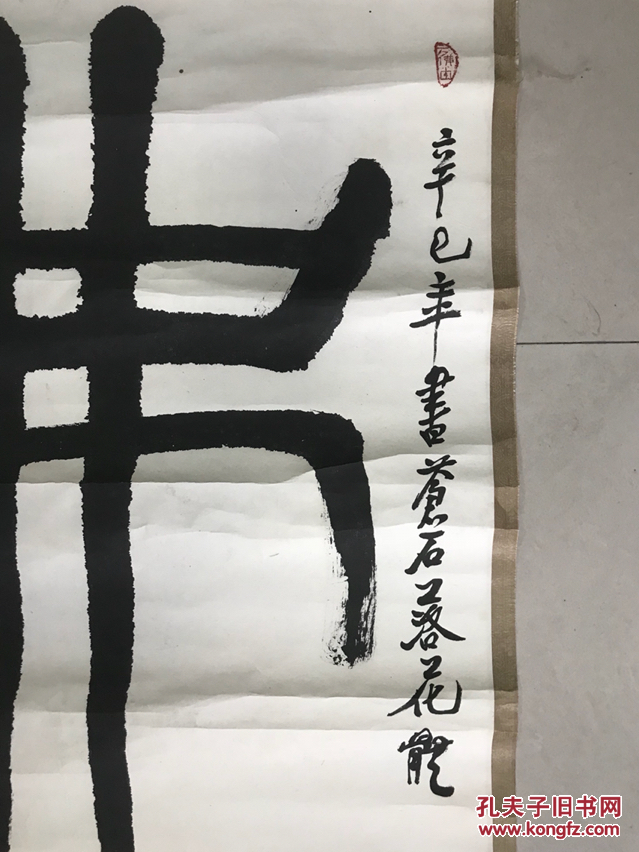 辛巳年書蒼石落花體
孔夫子旧书网
www.kongfz.com